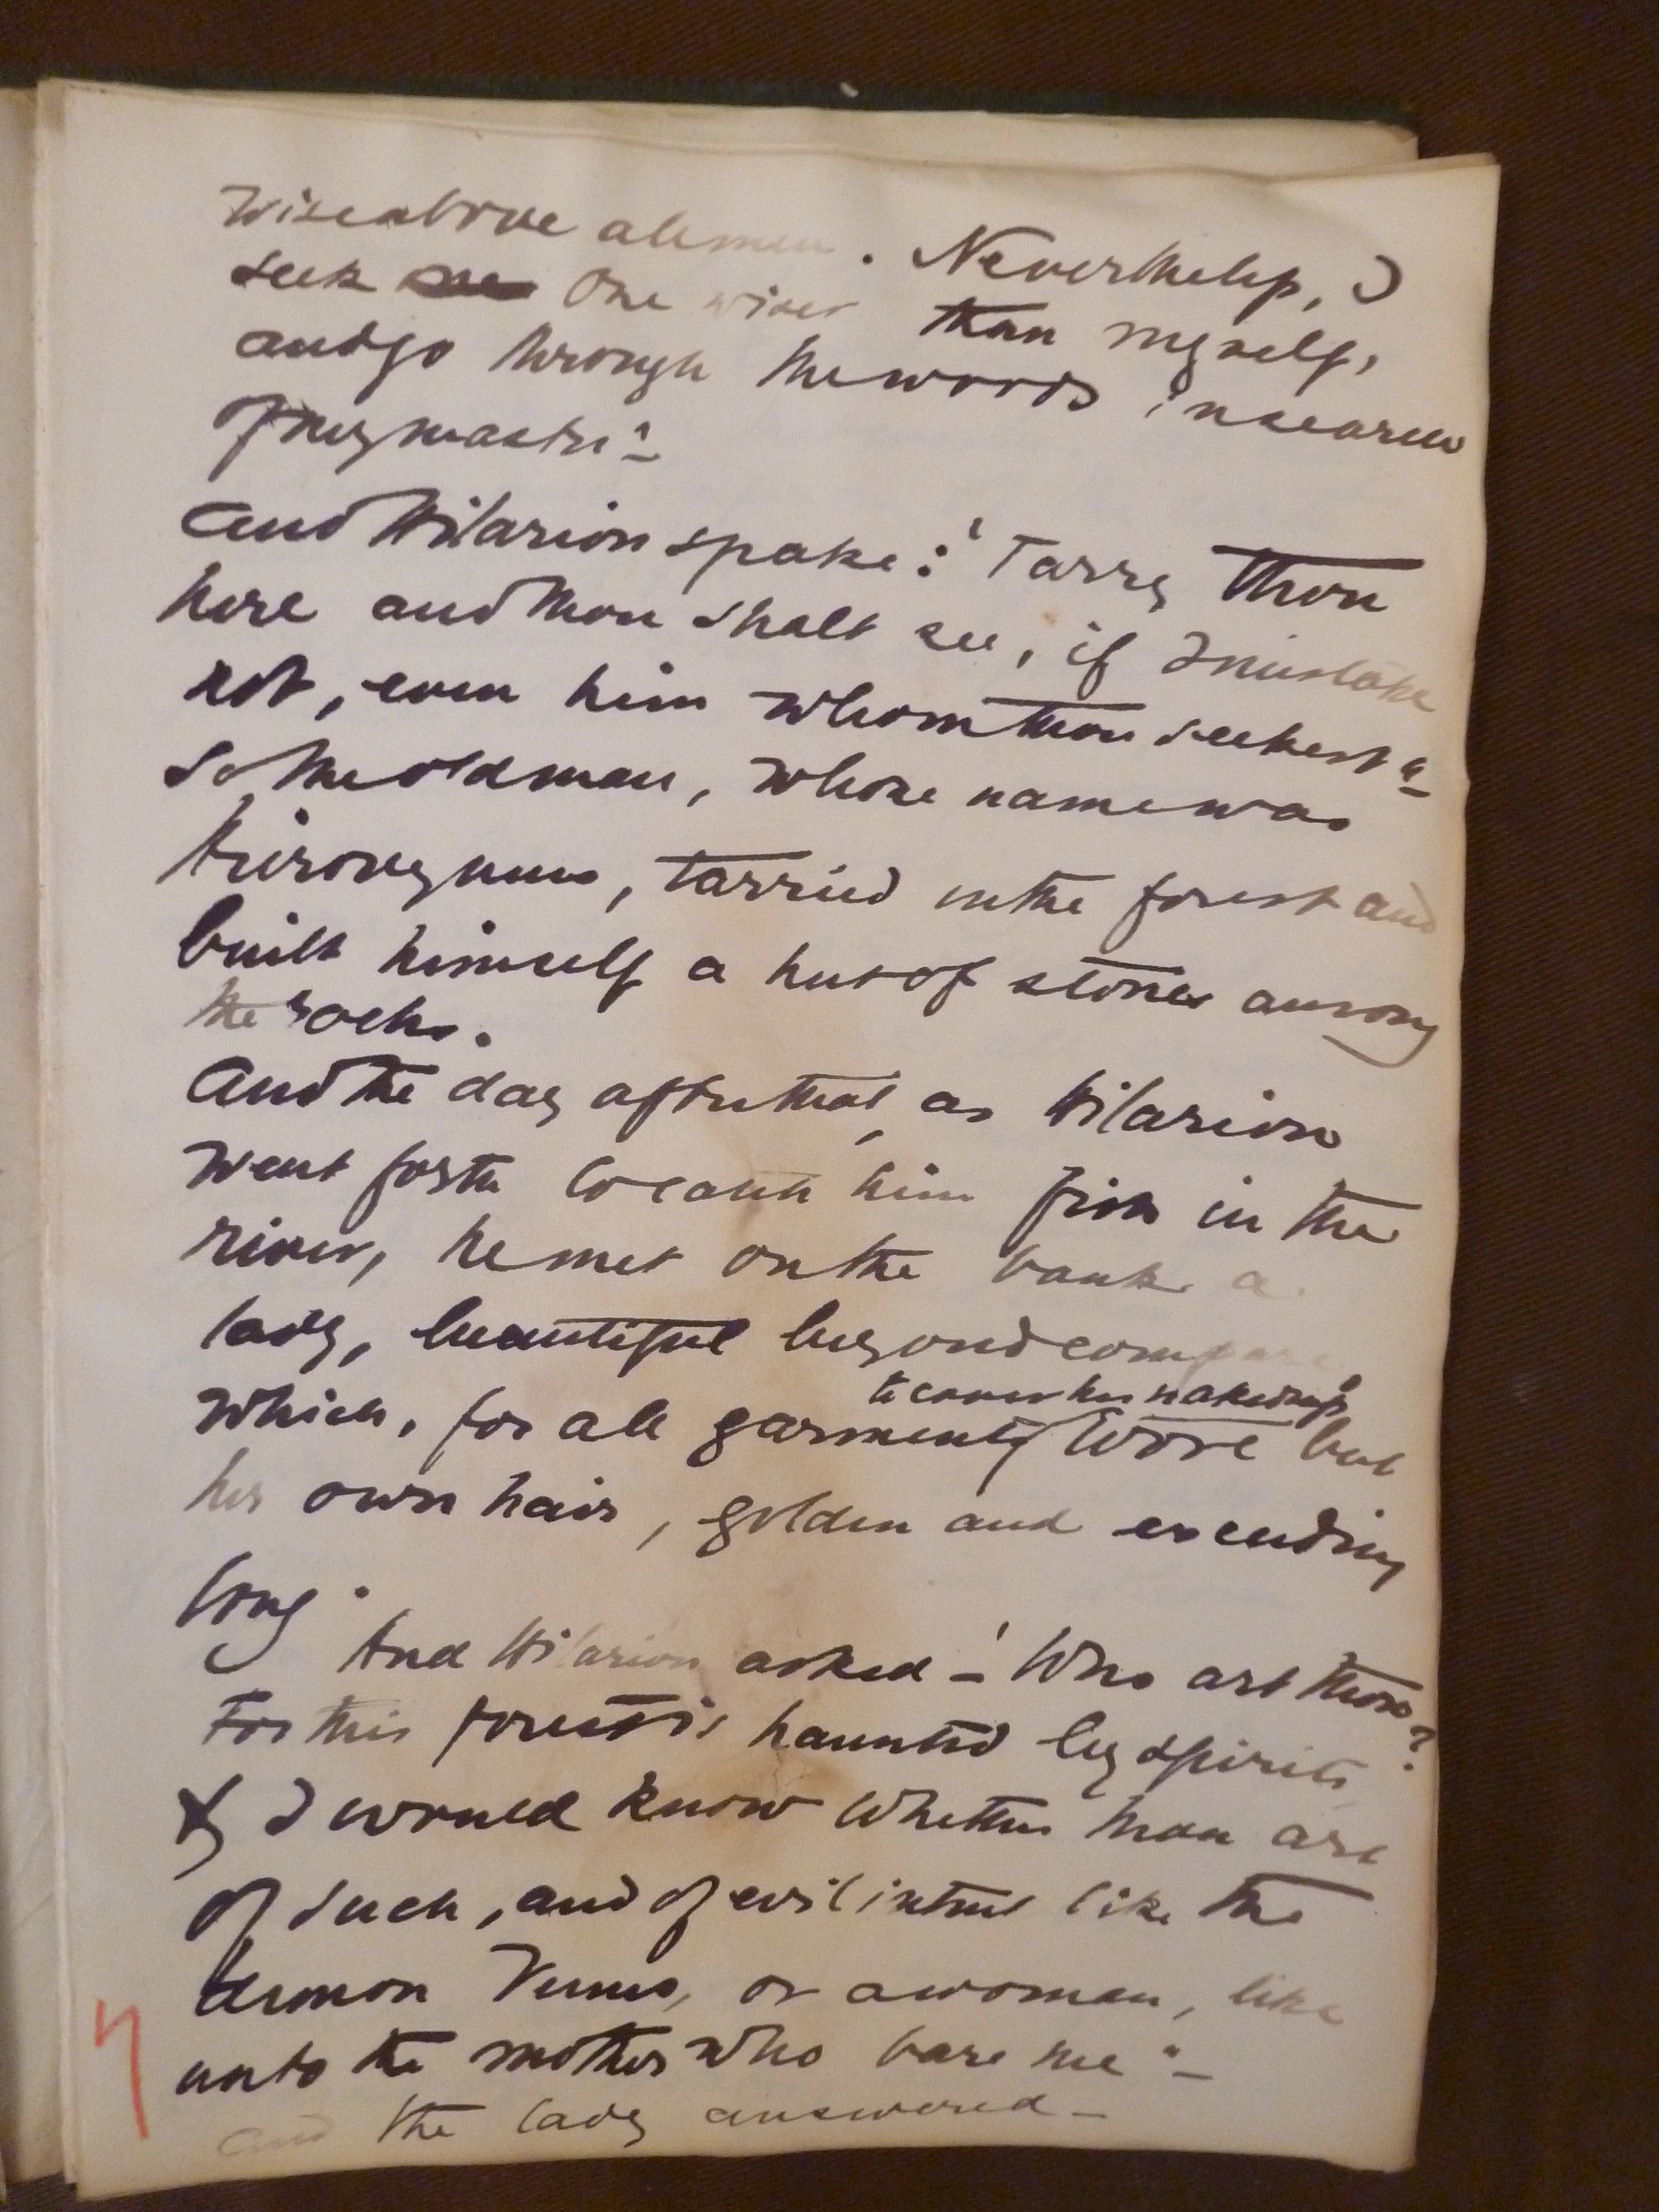 wise above all men. Nevertheless, I
seek one wiser than myself,
and go through the woods in search
of my master"
And Hilarion spake: 'Tarry thou
here and thou shalt see, if I mistake
not, even him whom thou seekest"
So the old man, whose name was
Hieronymus, tarried in the forest and
built himself a hut of stones among
the rocks.
And the day after that, as Hilarion
went forth to catch him fish in the
river, he met on the bank a
lady, beautiful beyond compare,
to cover her nakedness
which, for all garment wore but
her own hair, golden and exceeding
long.
And Hilarion asked - 'Who art thou?
For this forest is haunted by spirits
& I would know whether thou art
of such, and of evil intent like the
demon Venus, or a woman, like
unto the mother who bare me" -
And the lady answered -